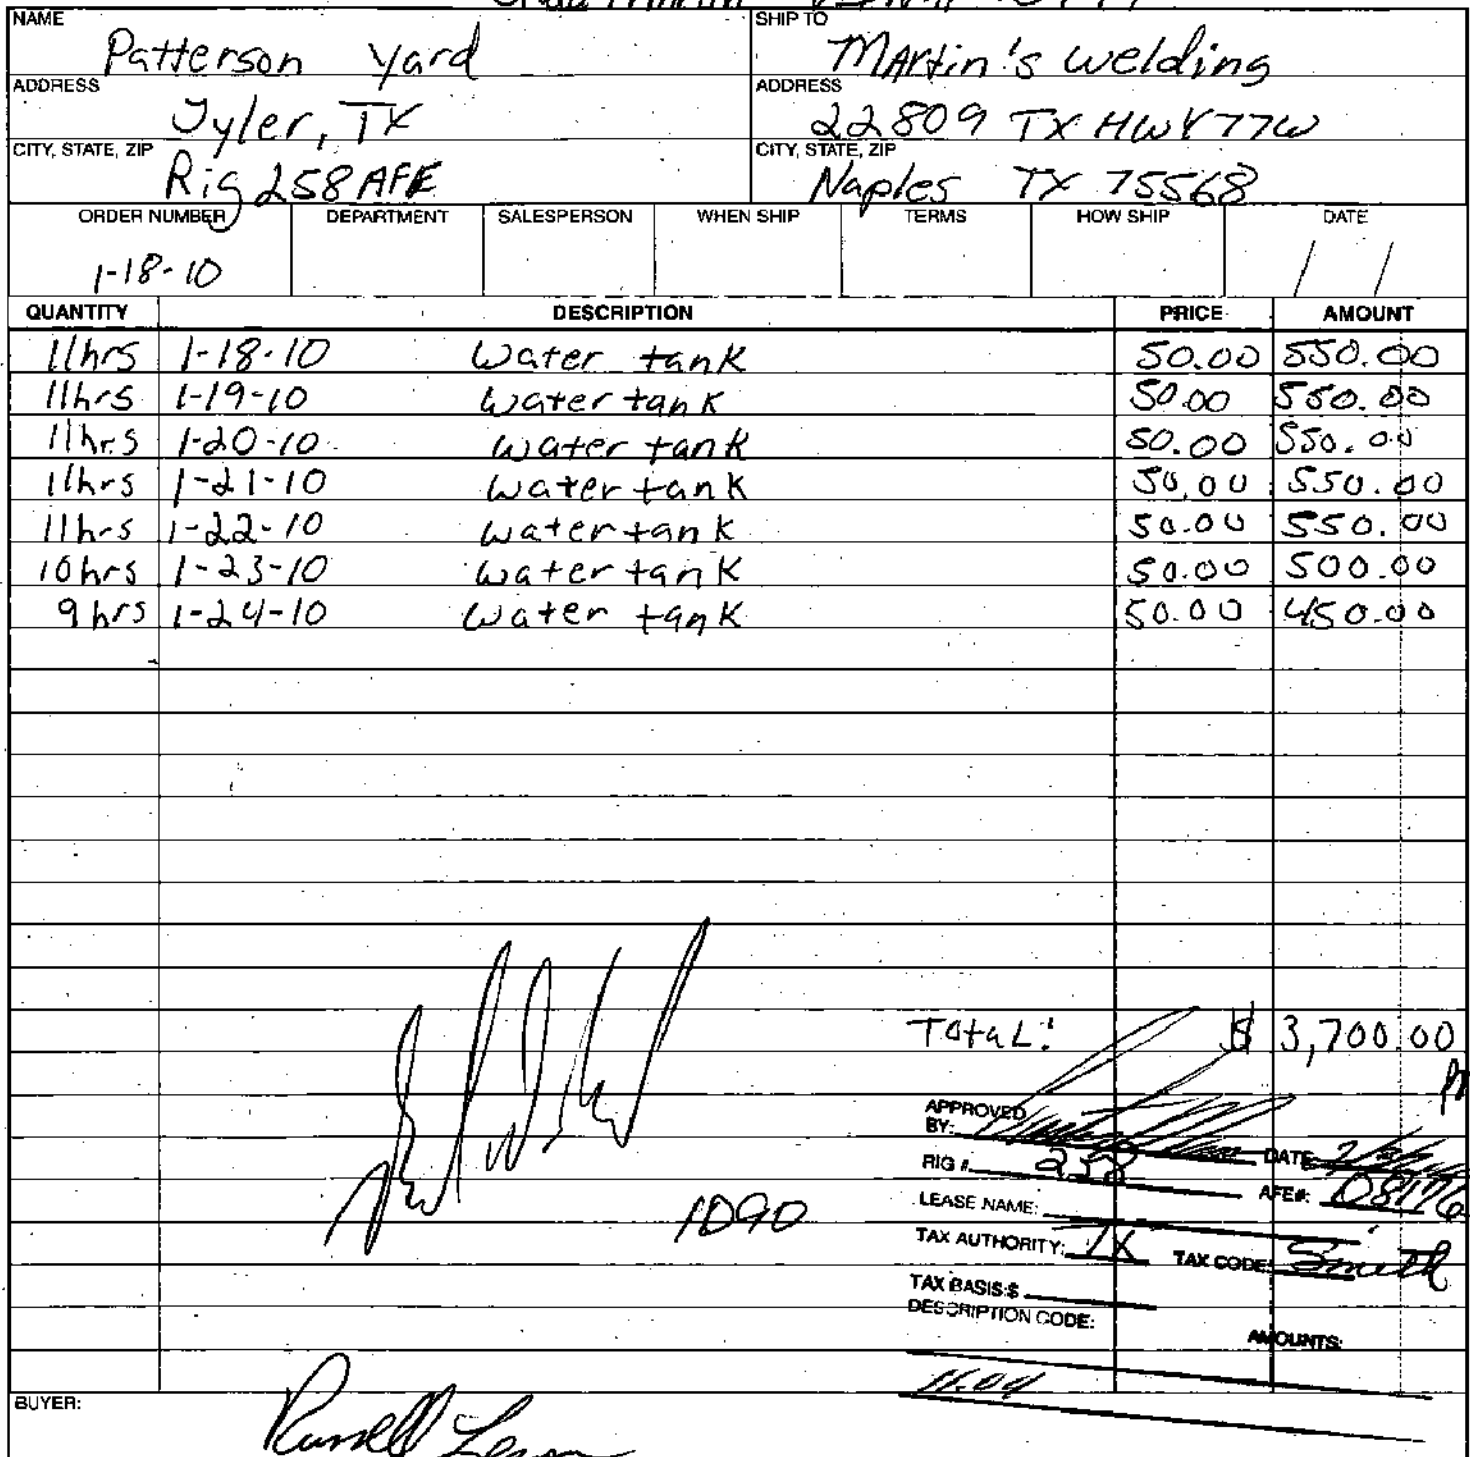 NAME
Patterson Yard
SHIP TO
Martin's welding
ADDRESS
Tyler, TX
ADDRESS
22809 TX HWY 77W
CITY, STATE, ZIP
Rig 258 AFE
CITY, STATE, ZIP
Naples TX 75568
ORDER NUMBER DEPARTMENT SALESPERSON WHEN SHIP TERMS HOW SHIP DATE
1-18-10 / /
QUANTITY DESCRIPTION PRICE AMOUNT
11hrs 1-18-10 Water tank 50.00 550.00
11hrs 1-19-10 Water tank 50.00 550.00
11hrs 1-20-10 Water tank 50.00 550.00
11hrs 1-21-10 Water tank 50.00 550.00
11hrs 1-22-10 Water tank 50.00 550.00
10hrs 1-23-10 Water tank 50.00 500.00
9hrs 1-24-10 Water tank 50.00 450.00
Total: $ 3,700.00
APPROVED
BY: DATE
RIG #. 258 AFE#:
LEASE NAME:
1090
TAX AUTHORITY: TX TAX CODE: Smith
TAX BASIS:$
DESCRIPTION CODE:
AMOUNTS:
11.04
BUYER:
Russell